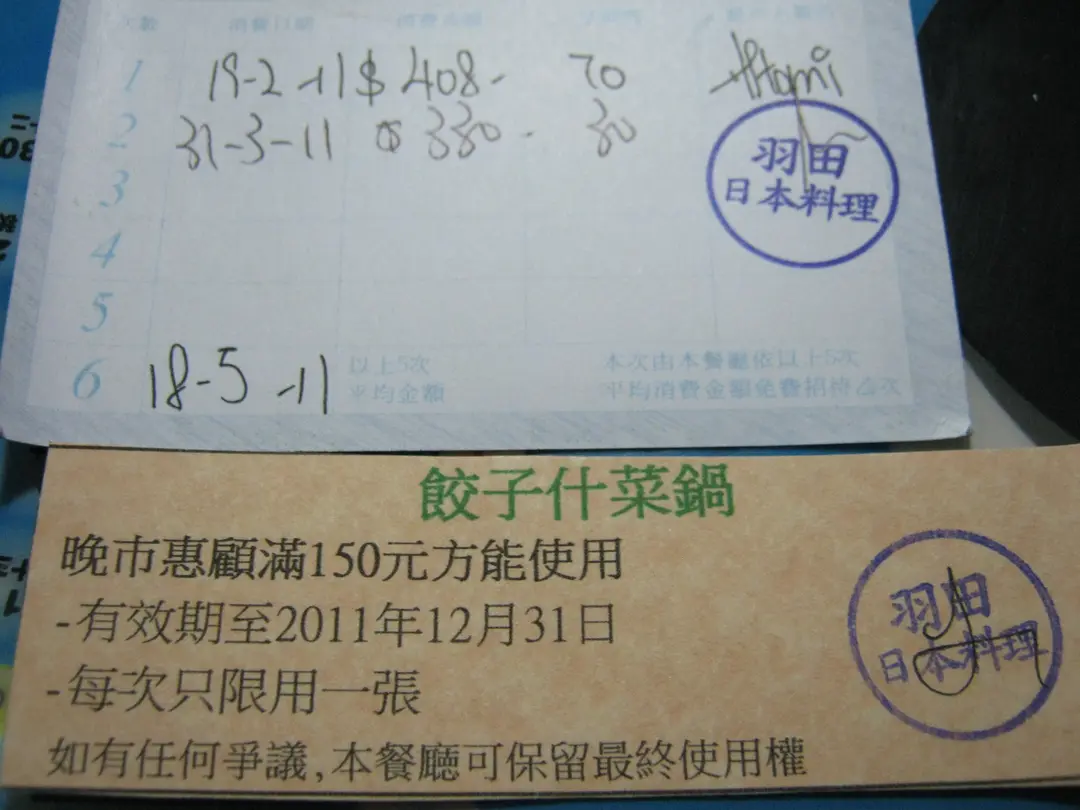 次數 消費日期 消費金額
1 19-2-11 $ 408- 70
2 31-3-11 $ 330- 30
羽田
日本料理
3
4
5
6 18-5-11 以上5次 本次由本餐廳依以上5次
平均金額 平均消費金額免費招待乙次
餃子什菜鍋
晚市惠顧滿150元方能使用
-有效期至2011年12月31日
-每次只限用一張
如有任何爭議,本餐廳可保留最終使用權
羽田
日本料理